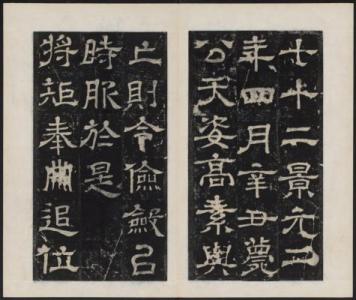 七十二景元二
年四月辛丑薨
公天姿高素與
亡則令儉斂㠯
時服於是
將矩奉冊追位